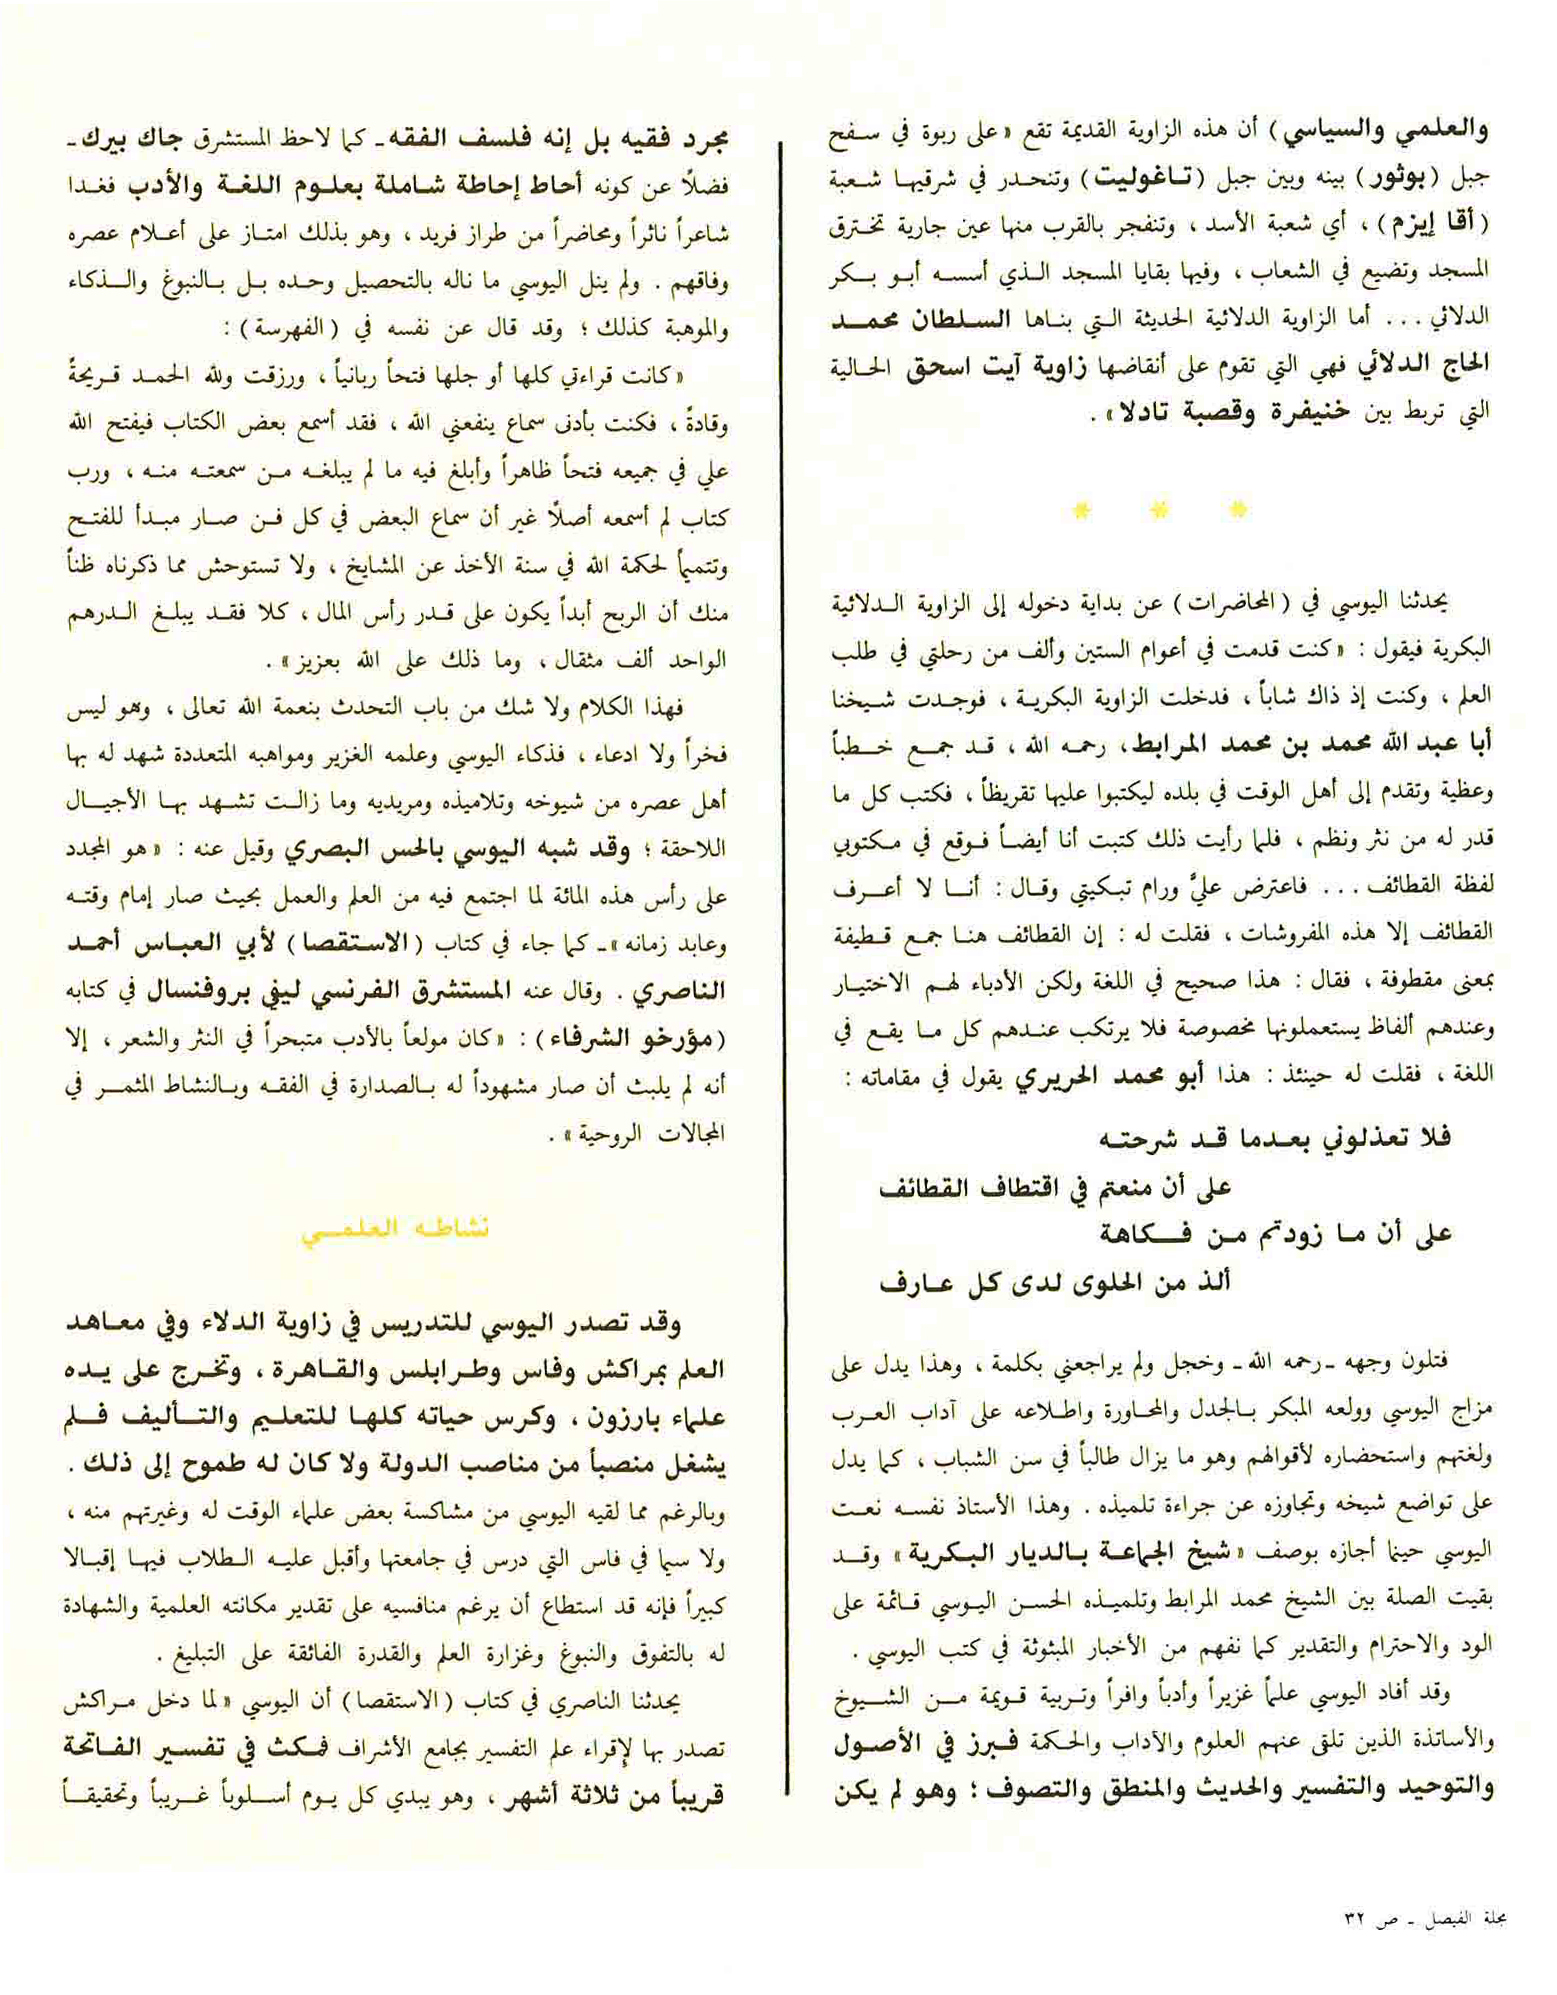 والعلمي والسياسي) أن هذه الزاوية القديمة تقع «على ربوة في سفح
جبل (بوثور) بينه وبين جبل (تاغوليت) وتنحدر في شرقيها شعبة
(أقا إيزم)، أي شعبة الأسد، وتنفجر بالقرب منها عين جارية تخترق
المسجد وتضيع في الشعاب، وفيها بقايا المسجد الذي أسسه أبو بكر
الدلائي... أما الزاوية الدلائية الحديثة التي بناها السلطان محمد
الحاج الدلائي فهي التي تقوم على أنقاضها زاوية آيت اسحق الحالية
التي تربط بين خنيفرة وقصبة تادلا».
* * *
يحدثنا اليوسي في (المحاضرات) عن بداية دخوله إلى الزاوية الدلائية
البكرية فيقول: «كنت قدمت في أعوام الستين وألف من رحلتي في طلب
العلم، وكنت إذ ذاك شاباً، فدخلت الزاوية البكرية، فوجدت شيخنا
أبا عبد الله محمد بن محمد المرابط، رحمه الله، قد جمع خطباً
وعظية وتقدم إلى أهل الوقت في بلده ليكتبوا عليها تقريظاً، فكتب كل ما
قدر له من نثر ونظم، فلما رأيت ذلك كتبت أنا أيضاً فوقع في مكتوبي
لفظة القطائف... فاعترض عليَّ ورام تبكيتي وقال: أنا لا أعرف
القطائف إلا هذه المفروشات، فقلت له: إن القطائف هنا جمع قطيفة
بمعنى مقطوفة، فقال: هذا صحيح في اللغة ولكن الأدباء لهم الاختيار
وعندهم ألفاظ يستعملونها مخصوصة فلا يرتكب عندهم كل ما يقع في
اللغة، فقلت له حينئذ: هذا أبو محمد الحريري يقول في مقاماته:
فلا تعذلوني بعدما قد شرحته
على أن منعتم في اقتطاف القطائف
على أن ما زودتم من فكاهة
ألذ من الحلوى لدى كل عارف
فتلون وجهه -رحمه الله- وخجل ولم يراجعني بكلمة، وهذا يدل على
مزاج اليوسي وولعه المبكر بالجدل والمحاورة واطلاعه على آداب العرب
ولغتهم واستحضاره لأقوالهم وهو ما يزال طالباً في سن الشباب، كما يدل
على تواضع شيخه وتجاوزه عن جراءة تلميذه. وهذا الأستاذ نفسه نعت
اليوسي حينما أجازه بوصف «شيخ الجماعة بالديار البكرية» وقد
بقيت الصلة بين الشيخ محمد المرابط وتلميذه الحسن اليوسي قائمة على
الود والاحترام والتقدير كما نفهم من الأخبار المبثوثة في كتب اليوسي.
وقد أفاد اليوسي علماً غزيراً وأدباً وافراً وتربية قويمة من الشيوخ
والأساتذة الذين تلقى عنهم العلوم والآداب والحكمة فبرز في الأصول
والتوحيد والتفسير والحديث والمنطق والتصوف؛ وهو لم يكن
مجرد فقيه بل إنه فلسف الفقه- كما لاحظ المستشرق جاك بيرك-
فضلاً عن كونه أحاط إحاطة شاملة بعلوم اللغة والأدب فغدا
شاعراً ناثراً ومحاضراً من طراز فريد، وهو بذلك امتاز على أعلام عصره
وفاقهم. ولم ينل اليوسي ما ناله بالتحصيل وحده بل بالنبوغ والذكاء
والموهبة كذلك؛ وقد قال عن نفسه في (الفهرسة):
«كانت قراءتي كلها أو جلها فتحاً ربانياً، ورزقت ولله الحمد قريحةً
وقادةً، فكنت بأدنى سماع ينفعني الله، فقد أسمع بعض الكتاب فيفتح الله
علي في جميعه فتحاً ظاهراً وأبلغ فيه ما لم يبلغه من سمعته منه، ورب
كتاب لم أسمعه أصلاً غير أن سماع البعض في كل فن صار مبدأ للفتح
وتتميماً لحكمة الله في سنة الأخذ عن المشايخ، ولا تستوحش مما ذكرناه ظناً
منك أن الربح أبداً يكون على قدر رأس المال، كلا فقد يبلغ الدرهم
الواحد ألف مثقال، وما ذلك على الله بعزيز».
فهذا الكلام ولا شك من باب التحدث بنعمة الله تعالى، وهو ليس
فخراً ولا ادعاء، فذكاء اليوسي وعلمه الغزير ومواهبه المتعددة شهد له بها
أهل عصره من شيوخه وتلاميذه ومريديه وما زالت تشهد بها الأجيال
اللاحقة؛ وقد شبه اليوسي بالحسن البصري وقيل عنه: «هو المجدد
على رأس هذه المائة لما اجتمع فيه من العلم والعمل بحيث صار إمام وقته
وعابد زمانه»- كما جاء في كتاب (الاستقصا) لأبي العباس أحمد
الناصري. وقال عنه المستشرق الفرنسي ليفي بروفنسال في كتابه
(مؤرخو الشرفاء): «كان مولعاً بالأدب متبحراً في النثر والشعر، إلا
أنه لم يلبث أن صار مشهوداً له بالصدارة في الفقه وبالنشاط المثمر في
المجالات الروحية».
نشاطه العلمي
وقد تصدر اليوسي للتدريس في زاوية الدلاء وفي معاهد
العلم بمراكش وفاس وطرابلس والقاهرة، وتخرج على يده
علماء بارزون، وكرس حياته كلها للتعليم والتأليف فلم
يشغل منصباً من مناصب الدولة ولا كان له طموح إلى ذلك.
وبالرغم مما لقيه اليوسي من مشاكسة بعض علماء الوقت له وغيرتهم منه،
ولا سيما في فاس التي درس في جامعتها وأقبل عليه الطلاب فيها إقبالا
كبيراً فإنه قد استطاع أن يرغم منافسيه على تقدير مكانته العلمية والشهادة
له بالتفوق والنبوغ وغزارة العلم والقدرة الفائقة على التبليغ.
يحدثنا الناصري في كتاب (الاستقصا) أن اليوسي «لما دخل مراكش
تصدر بها لإقراء علم التفسير بجامع الأشراف فمكث في تفسير الفاتحة
قريباً من ثلاثة أشهر، وهو يبدي كل يوم أسلوباً غريباً وتحقيقاً
مجلة الفيصل - ص ٣٢